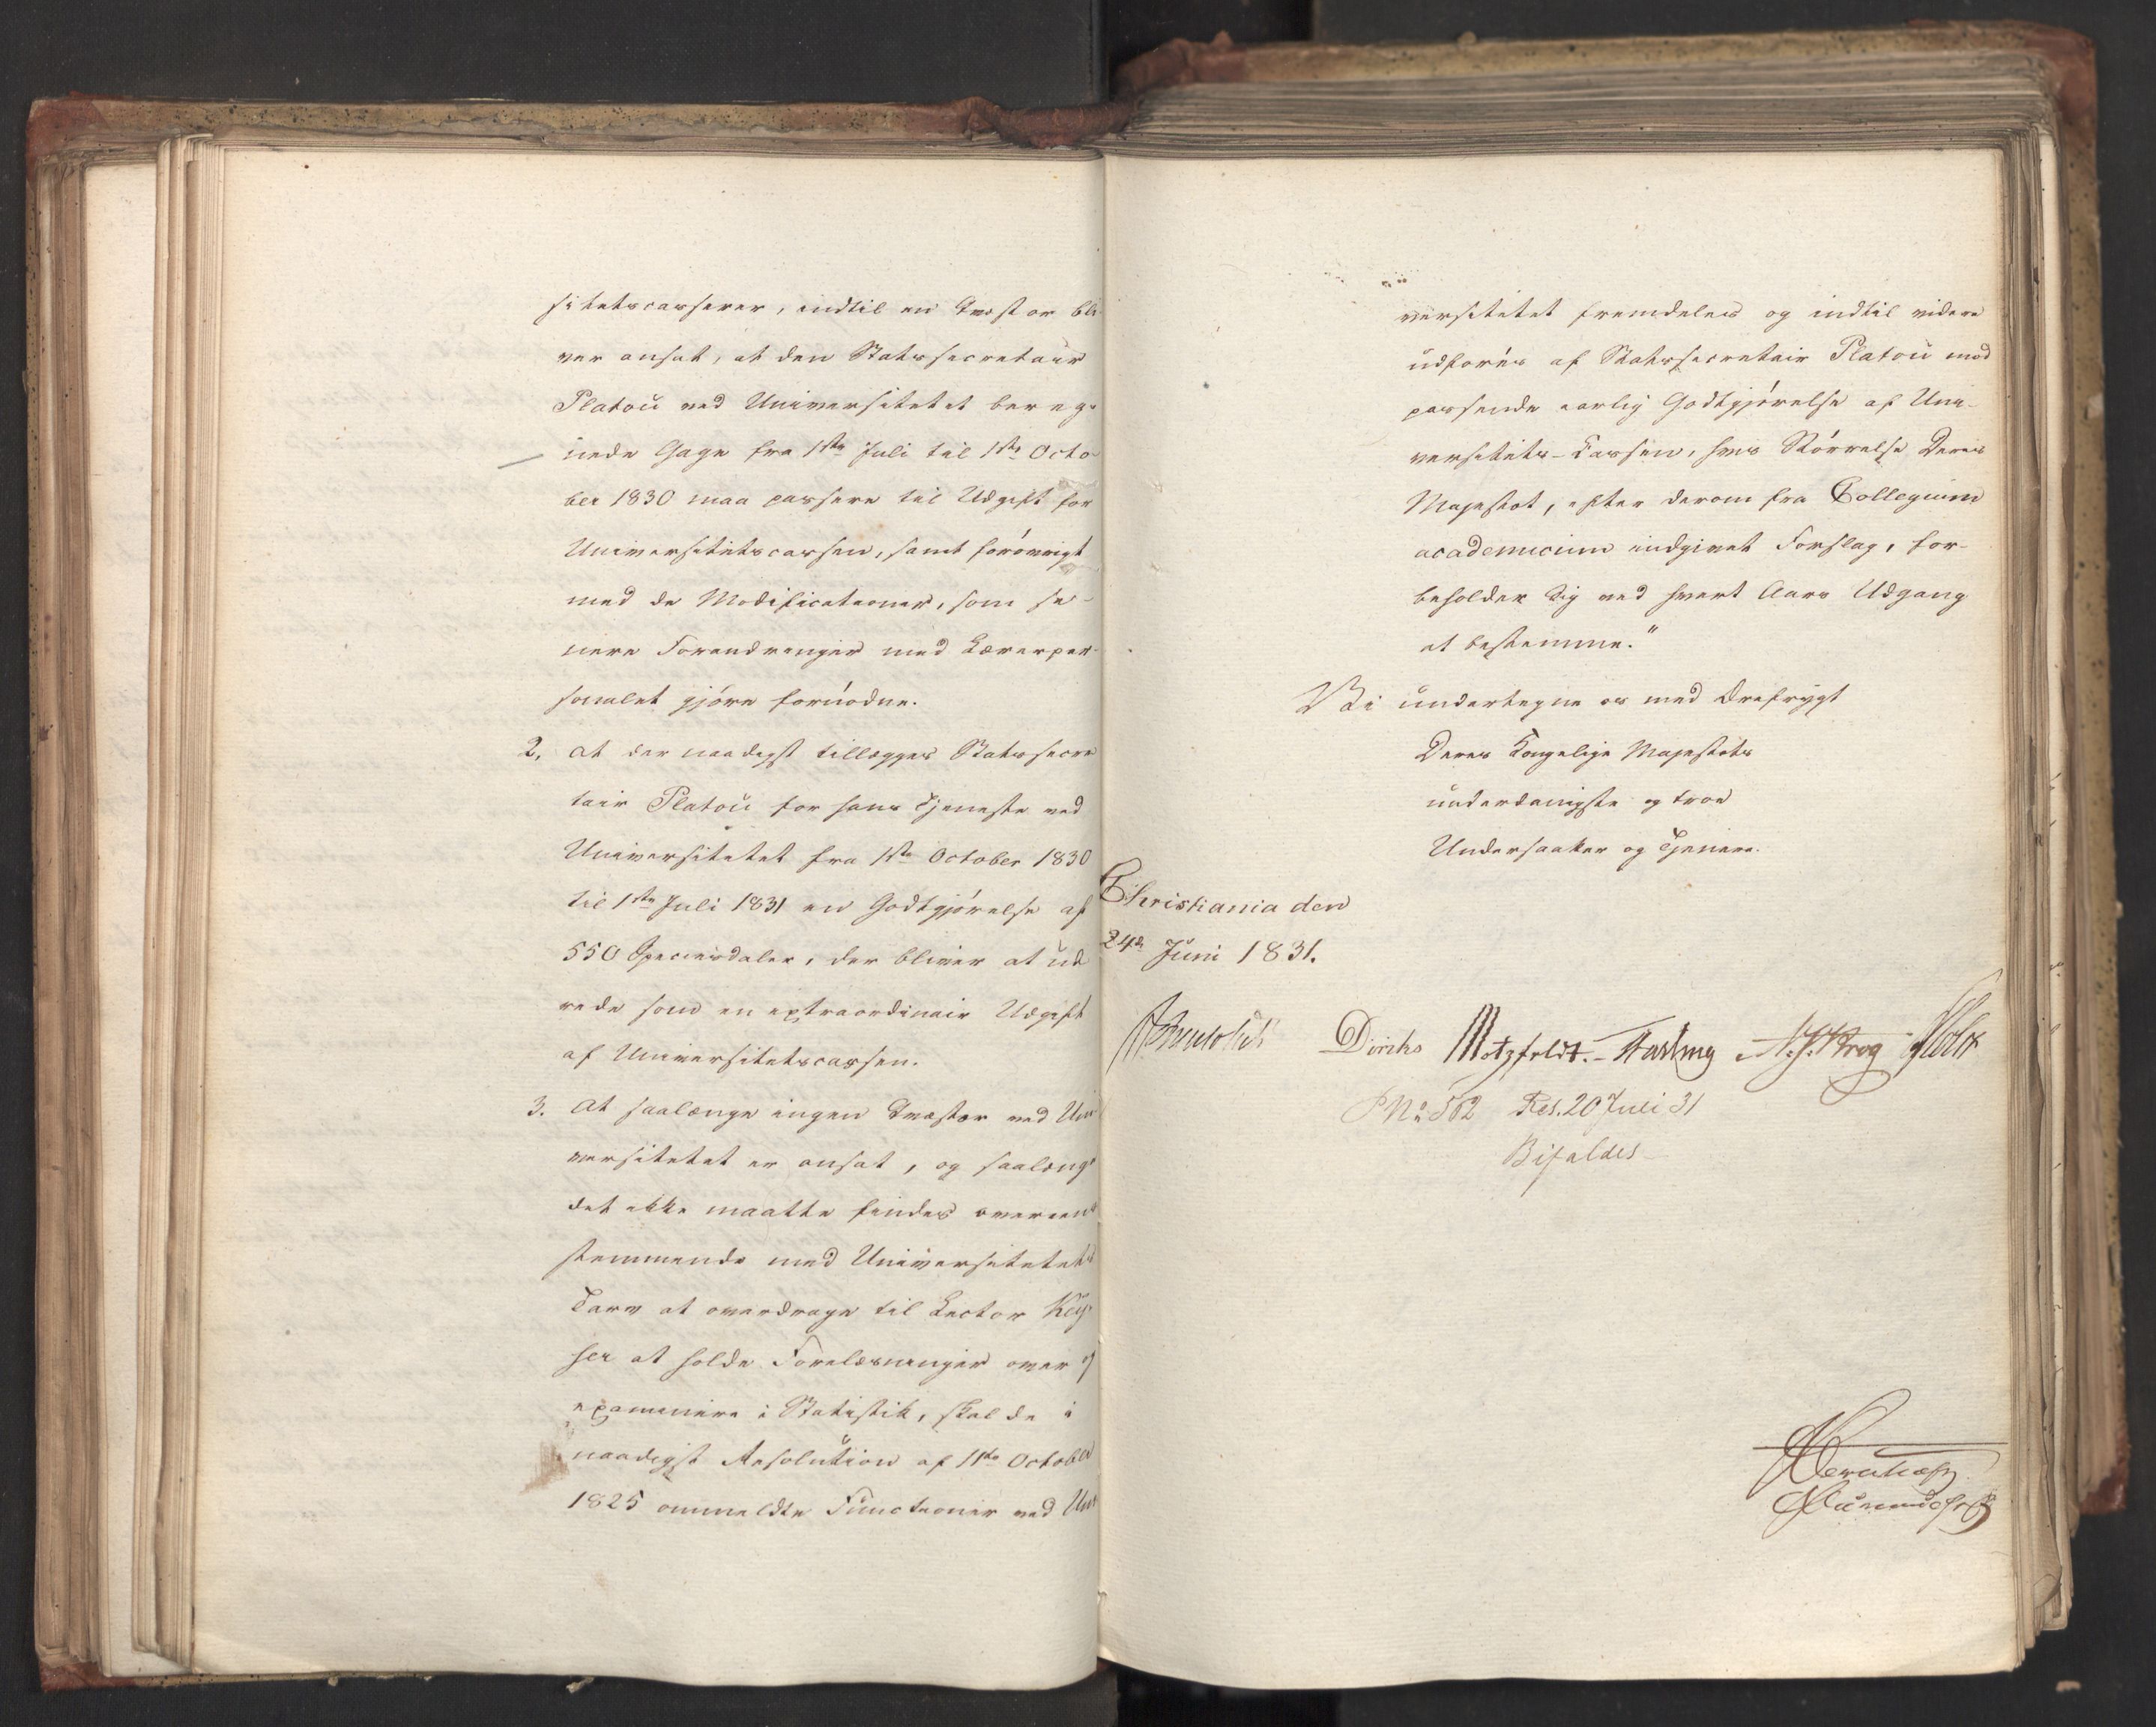 sitetscasserer, indtil en Qvæstor bli-
ver ansat, at den Statssecretair
Platou ved Universitetet bereg-
nede Gage fra 1ste Juli til 1ste Octo-
ber 1830 maa passere til Udgift for
Universitetscassen, samt forøvrigt
med de Modificationer, som se-
nere Forandringer med Lærerper-
sonalet gjøre fornødne.
2. at der naadigst tillægges Statssecre
tair Platou for hans Tjeneste ved
Universitetet fra 1ste October 1830
til 1ste Juli 1831 en Godtgjørelse af
550 Speciesdaler, der bliver at ud
rede som en extraordinair Udgift
af Universitetscassen.
3. At saalænge ingen Qvæstor ved Uni
versitetet er ansat, og saalænge
det ikke maatte findes overeens
stemmende med Universitetets
Tarv at overdrage til Lector Key-
ser at holde Forelæsninger over og
examinere i Statistik, skal de i
naadigst Resolution af 11te October
1825 ommeldte Functioner ved Uni
versitetet fremdeles og indtil videre
udføres af Statssecretair Platou mod
passende aarlig Godtgjørelse af Uni-
versitets-Cassen, hvis Størrelse Deres
Majestæt, efter derom fra Collegium
academicum indgivet Forslag, for-
beholder Sig ved hvert Aars Udgang
at bestemme."
Vi undertegne os med Ærefrygt
Deres Kongelige Majestæts
underdanigste og troe
Undersaatter og Tjenere.
Christiania den
24de Juni 1831.
Diriks Motzfeldt. Fasting N. J. Krog Holst
PNo 562 Res. 20 Juli 31
Bifaldes